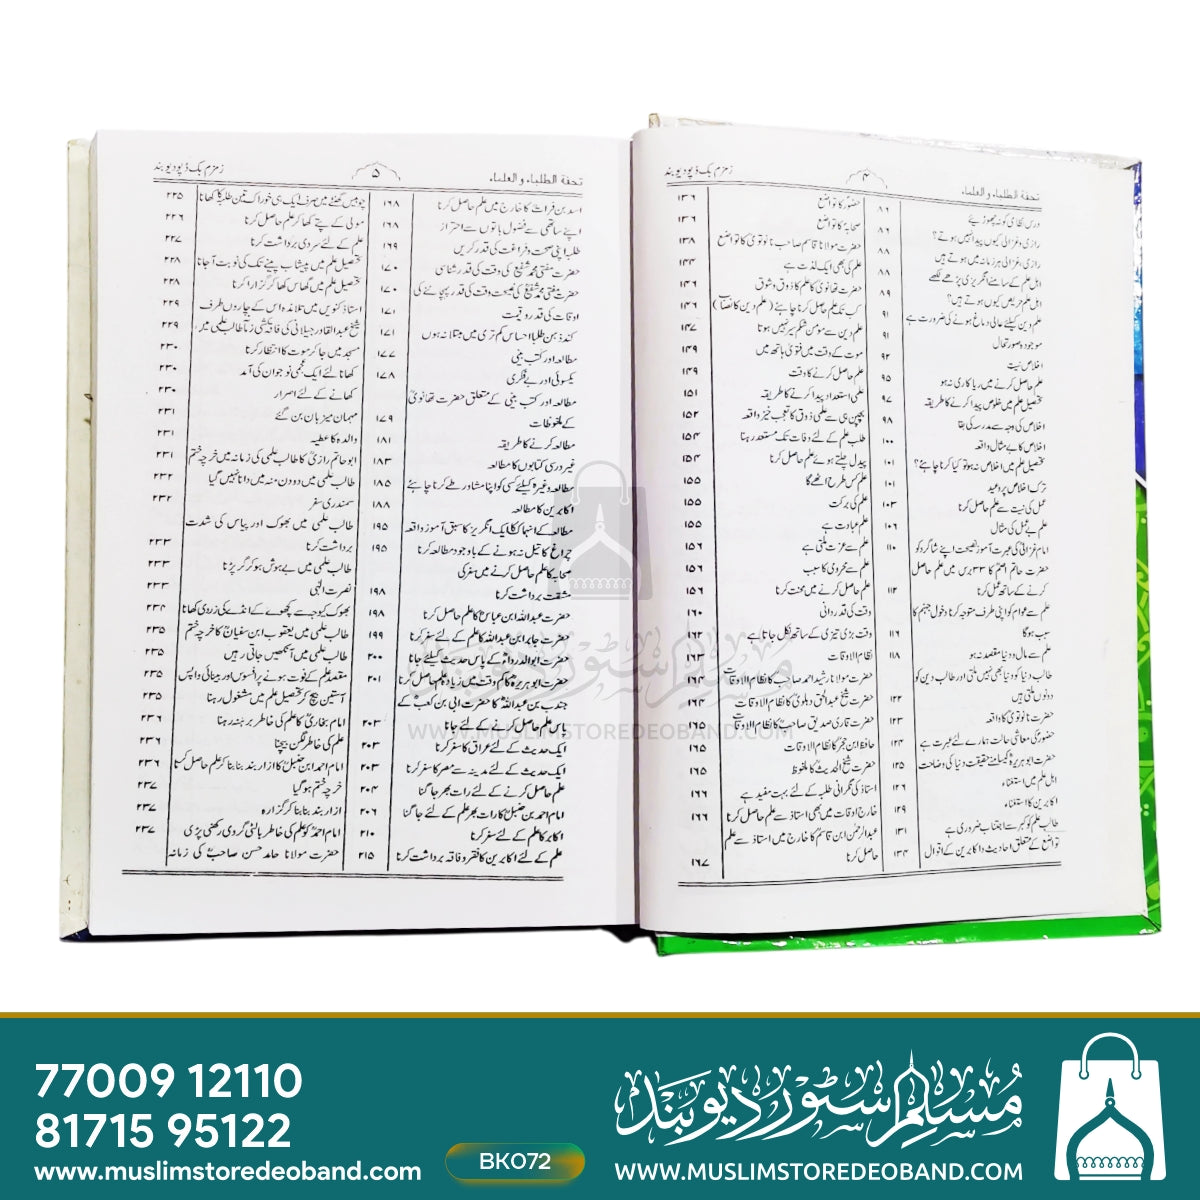 تحفة الطلباء والعلماء
۴
زمزم بک ڈپو دیوبند
درس نظامی کو نہ چھوڑیئے ۸۶
رازی، غزالی کیوں پیدا نہیں ہوتے؟ ۸۶
رازی، غزالی ہر زمانہ میں ہوتے ہیں ۸۸
اہل علم کے سامنے انگریزی پڑھے لکھے ۸۸
اہل علم حریص کیوں ہوتے ہیں؟ ۸۹
علم دین کیلئے عالی دماغ ہونے کی ضرورت ہے ۹۱
موجودہ صورتحال ۹۱
اخلاص نیت ۹۲
علم حاصل کرنے میں ریاکاری نہ ہو ۹۵
تحصیل علم میں خلوص پیدا کرنے کا طریقہ ۹۷
اخلاص کی وجہ سے مدرسہ کی بقا ۹۸
اخلاص کا بے مثال واقعہ ۱۰۰
تحصیل علم میں اخلاص نہ ہو تو کیا کرنا چاہئے؟ ۱۰۱
ترک اخلاص پر وعید ۱۰۱
عمل کی نیت سے علم حاصل کرنا ۱۰۳
علم بے عمل کی مثال ۱۰۶
امام غزالیؒ کی عبرت آموز نصیحت اپنے شاگرد کو ۱۱۰
حضرت حاتم اصمؒ کا ۳۳ برس میں علم حاصل
کرنے کے ساتھ عمل کرنا ۱۱۲
علم سے عوام کو اپنی طرف متوجہ کرنا دخول جہنم کا
سبب ہوگا ۱۱۶
علم سے مال و دنیا مقصد نہ ہو ۱۱۸
طالب دنیا کو دنیا بھی نہیں ملتی اور طالب دین کو
دونوں ملتی ہیں ۱۲۲
حضرت نانوتویؒ کا واقعہ ۱۲۳
حضورؐ کی معاشی حالت ہمارے لئے عبرت ہے ۱۲۴
حضرت ابوہریرہؓ کیسامنے حقیقت دنیا کی وضاحت ۱۲۵
اہل علم میں استغناء ۱۲۶
اکابرین کا استغناء ۱۲۹
طالب علم کو کبر سے اجتناب ضروری ہے ۱۳۱
تواضع کے متعلق احادیث و اکابرین کے اقوال ۱۳۴
حضورؐ کا تواضع ۱۳۶
صحابہؓ کا تواضع ۱۳۶
حضرت مولانا قاسم صاحب نانوتویؒ کا تواضع ۱۳۸
علم کی بھی ایک لذت ہے ۱۴۴
حضرت تھانویؒ کا علم کا ذوق و شوق ۱۴۶
کب تک علم حاصل کرنا چاہئے (علم دین کا نصاب) ۱۴۶
علم دین سے مومن شکم سیر نہیں ہوتا ۱۴۷
موت کے وقت میں فتویٰ ہاتھ میں ۱۴۹
علم حاصل کرنے کا وقت ۱۴۹
علمی استعداد پیدا کرنے کا طریقہ ۱۵۱
بچپن ہی سے علمی ذوق کا تعجب خیز واقعہ ۱۵۲
طلب علم کے لئے وفات تک مستعد رہنا ۱۵۴
پیدل چلتے ہوئے علم حاصل کرنا ۱۵۴
علم کس طرح اٹھے گا ۱۵۵
علم کی برکت ۱۵۵
علم عبادت ہے ۱۵۵
علم سے عزت ملتی ہے ۱۵۶
علم سے محرومی کا سبب ۱۵۶
علم حاصل کرنے میں محنت کرنا ۱۵۶
وقت کی قدردانی ۱۶۰
وقت بڑی تیزی کے ساتھ نکل جاتا ہے ۱۶۲
نظام الاوقات ۱۶۳
حضرت مولانا رشید احمد صاحبؒ کا نظام الاوقات ۱۶۴
حضرت شیخ عبدالحق دہلویؒ کا نظام الاوقات ۱۶۴
حضرت قاری صدیق صاحبؒ کا نظام الاوقات ۱۶۵
حافظ ابن حجرؒ کا نظام الاوقات ۱۶۵
حضرت شیخ الحدیثؒ کا ملفوظ ۱۶۵
استاذ کی نگرانی طلبہ کے لئے بہت مفید ہے ۱۶۶
خارج اوقات میں بھی استاذ سے علم حاصل کرنا ۱۶۶
عبدالرحمٰن ابن قاسمؒ کا خارج میں استاذ سے علم
حاصل کرنا ۱۶۷
تحفة الطلباء والعلماء
۵
زمزم بک ڈپو دیوبند
اسد بن فراتؒ کا خارج میں علم حاصل کرنا ۱۶۸
اپنے ساتھی سے فضول باتوں سے احتراز ۱۶۸
طلبا اپنی صحت و فراغت کی قدر کریں ۱۶۹
حضرت مفتی محمد شفیعؒ کی وقت کی قدر شناسی ۱۷۰
حضرت مفتی محمد شفیعؒ کی نصیحت وقت کی قدر پہچاننے کی ۱۷۰
اوقات کی قدر و قیمت ۱۷۱
کند ذہن طلبا احساس کمتری میں مبتلا نہ ہوں ۱۷۱
مطالعہ اور کتب بینی ۱۷۷
یکسوئی اور بے فکری ۱۷۸
مطالعہ اور کتب بینی کے متعلق حضرت تھانویؒ
کے ملفوظات ۱۷۹
مطالعہ کرنے کا طریقہ ۱۸۱
غیر درسی کتابوں کا مطالعہ ۱۸۳
مطالعہ وغیرہ کیلئے کسی کو اپنا مشاور طے کرنا چاہئے ۱۸۵
اکابرین کا مطالعہ ۱۸۸
مطالعہ کے انہماک کا ایک انگریز کا سبق آموز واقعہ ۱۹۵
چراغ کا تیل نہ ہونے کے باوجود مطالعہ کرنا ۱۹۵
صحابہ کا علم حاصل کرنے میں سفر کی
مشقت برداشت کرنا ۱۹۸
حضرت عبداللہ ابن عباسؓ کا علم حاصل کرنا ۱۹۸
حضرت جابر ابن عبداللہؓ کا علم کے لئے سفر کرنا ۱۹۹
حضرت ابوالدرداءؓ کے پاس حدیث کیلئے جانا ۲۰۰
حضرت ابوہریرہؓ کا کم وقت میں زیادہ علم حاصل کرنا ۲۰۱
جندب بن عبداللہؓ کا حضرت ابی بن کعبؓ کے
پاس علم حاصل کرنے کے لئے جانا ۲۰۳
ایک حدیث کے لئے عراق کا سفر کرنا ۲۰۳
ایک حدیث کے لئے مدینہ سے مصر کا سفر کرنا ۲۰۳
علم حاصل کرنے کے لئے رات بھر جاگنا ۲۰۴
امام احمد بن حنبلؒ کا رات بھر علم کے لئے جاگنا ۲۰۶
اکابر کا علم کے لئے سفر کرنا ۲۱۰
علم کے لئے اکابرین کا فقر و فاقہ برداشت کرنا ۲۱۵
چوبیس گھنٹے میں صرف ایک ہی خوراک تین طلبہ کا کھانا ۲۲۵
مولی کے پتے کھا کر علم حاصل کرنا ۲۲۶
علم کے لئے سردی برداشت کرنا ۲۲۷
تحصیل علم میں پیشاب پینے تک کی نوبت آجانا ۲۲۸
تحصیل علم میں گھاس کھا کر گزارا کرنا ۲۲۸
استاذ کنویں میں تلامذہ اس کے چاروں طرف ۲۲۹
شیخ عبدالقادر جیلانی کی فاقہ کشی زمانۂ طالب علمی میں ۲۲۹
مسجد میں جا کر موت کا انتظار کرنا ۲۳۰
کھانا لئے ایک عجمی نوجوان کی آمد ۲۳۰
کھانے کے لئے اصرار ۲۳۰
مہمان میزبان بن گئے ۲۳۱
والدہ کا عطیہ ۲۳۱
ابوحاتم رازیؒ کا طالب علمی کی زمانہ میں خرچہ ختم ۲۳۱
طالب علمی میں دو دن منہ میں دانا نہیں گیا ۲۳۲
سمندری سفر ۲۳۲
طالب علمی میں بھوک اور پیاس کی شدت
برداشت کرنا ۲۳۳
طالب علمی میں بے ہوش ہو کر گر پڑنا ۲۳۳
نصرت الٰہی ۲۳۳
بھوک کیوجہ سے کچھوے کے انڈے کی زردی کھانا ۲۳۴
طالب علمی میں یعقوب ابن سفیانؒ کا خرچہ ختم ۲۳۵
طالب علمی میں آنکھیں جاتی رہیں ۲۳۵
مقصد علم کے فوت ہونے پر افسوس اور بینائی واپس ۲۳۵
آستین بیچ کر تحصیل علم میں مشغول رہنا ۲۳۵
امام بخاریؒ کا علم کی خاطر برہنہ رہنا ۲۳۶
علم کی خاطر لگن بیچنا ۲۳۶
امام احمد ابن حنبلؒ کا ازار بند بنا بنا کر علم حاصل کرنا ۲۳۶
خرچہ ختم ہو گیا
ازار بند بنا بنا کر گزارہ ۲۳۷
امام احمدؒ کو علم کی خاطر بالٹی گروی رکھنی پڑی ۲۳۷
حضرت مولانا حامد حسن صاحبؒ کی زمانہ
مسلم سٹور دیوبند
WWW.MUSLIMSTOREDEOBAND.COM
77009 12110
81715 95122
www.muslimstoredeoband.com
BK072
مسلم سٹور دیوبند
WWW.MUSLIMSTOREDEOBAND.COM